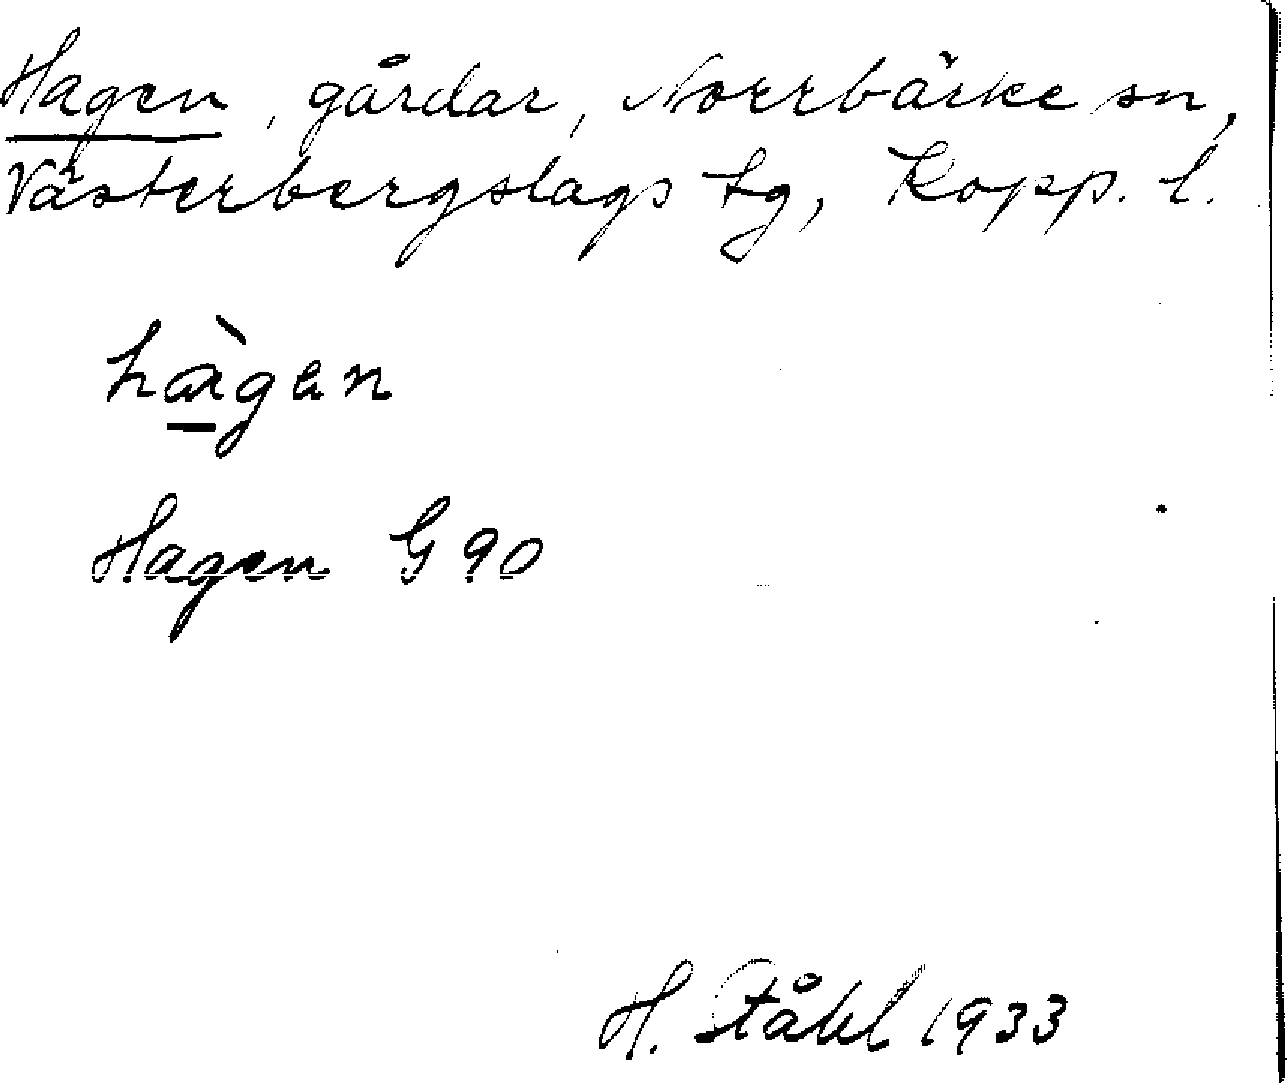 Hagen, gårdar, Norrbärke sn,
Västerbergslags tg, Kopp. l.
hàgen
Hagen G 90
H. Ståhl 1933